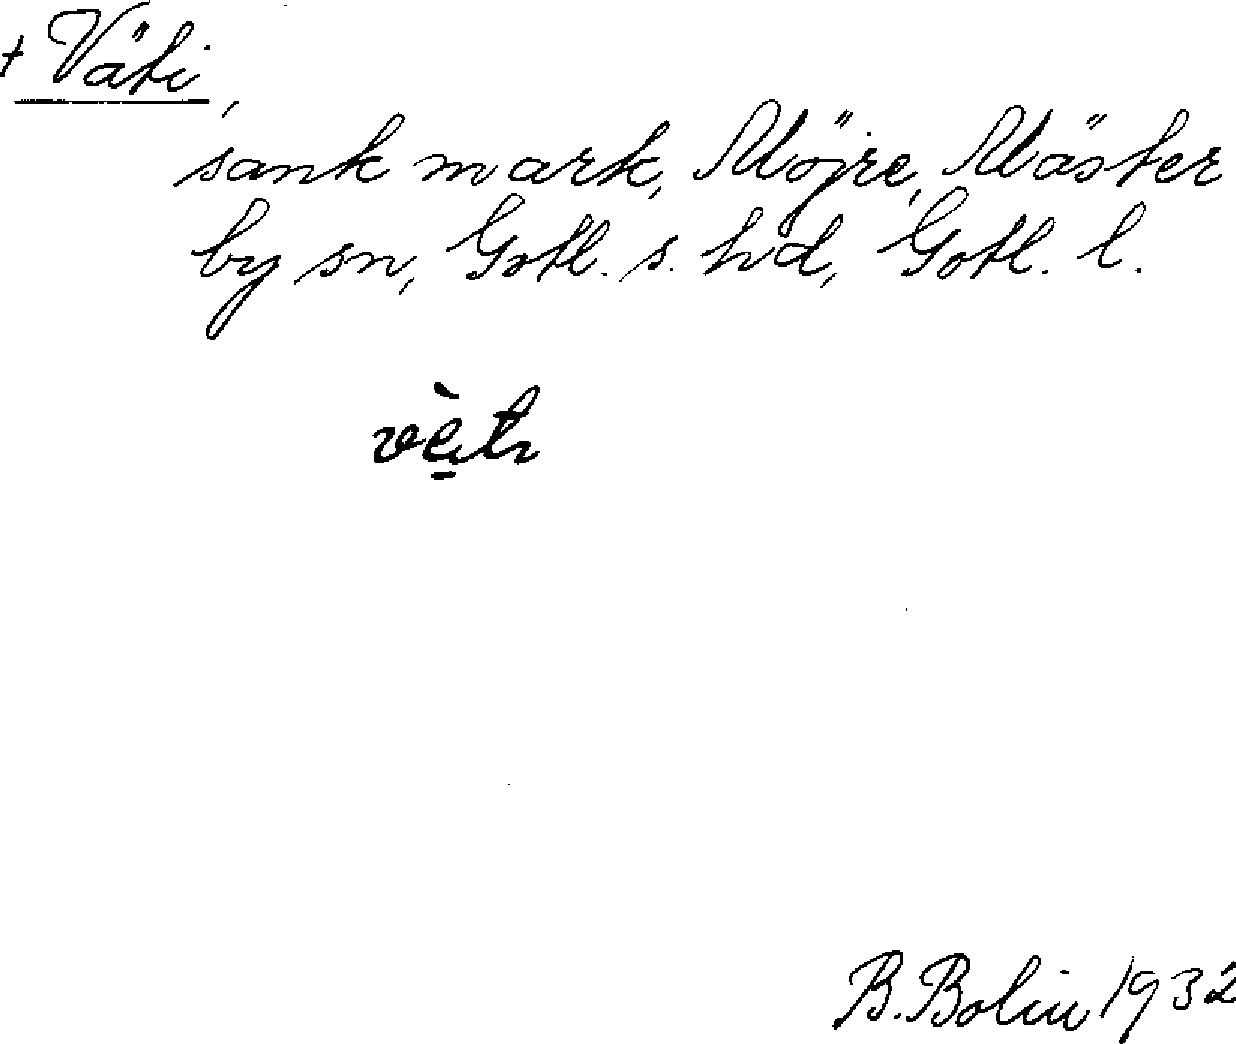 + Väti,
sank mark, Möjre, Mäster
by sn, Gotl. s. hd, Gotl. l.
vètı
B. Bolin 1932